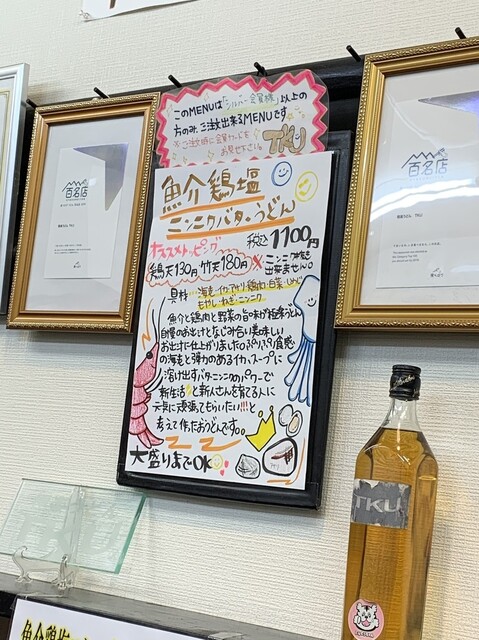 このMENUは「シルバー会員様」以上の
方のみ、ご注文出来るMENUです。
※ご注文時に会員カードを
お見せ下さい。
TKU
百名店
百名店
魚介鶏塩
ニンニクバターうどん
税込1100円
オススメトッピング
鶏天130円 竹天180円
※ニンニク抜き
出来ません。
具材…海老・イカ・アサリ・鶏肉・白菜・
もやし・ねぎ・ニンニク
魚介と鶏肉と野菜の旨味が極楽うどん
自慢のお出汁となじみ合う美味しい
お出汁に仕上がりました。プリプリ食感
の海老と弾力のあるイカ、スープに
溶け出すバターニンニクのパワーで
新生活と新人さんを育てる人に
元気に頑張ってもらいたい!!!と
考えて作ったおうどんです。
大盛りまでOK
TKU
魚介鶏塩